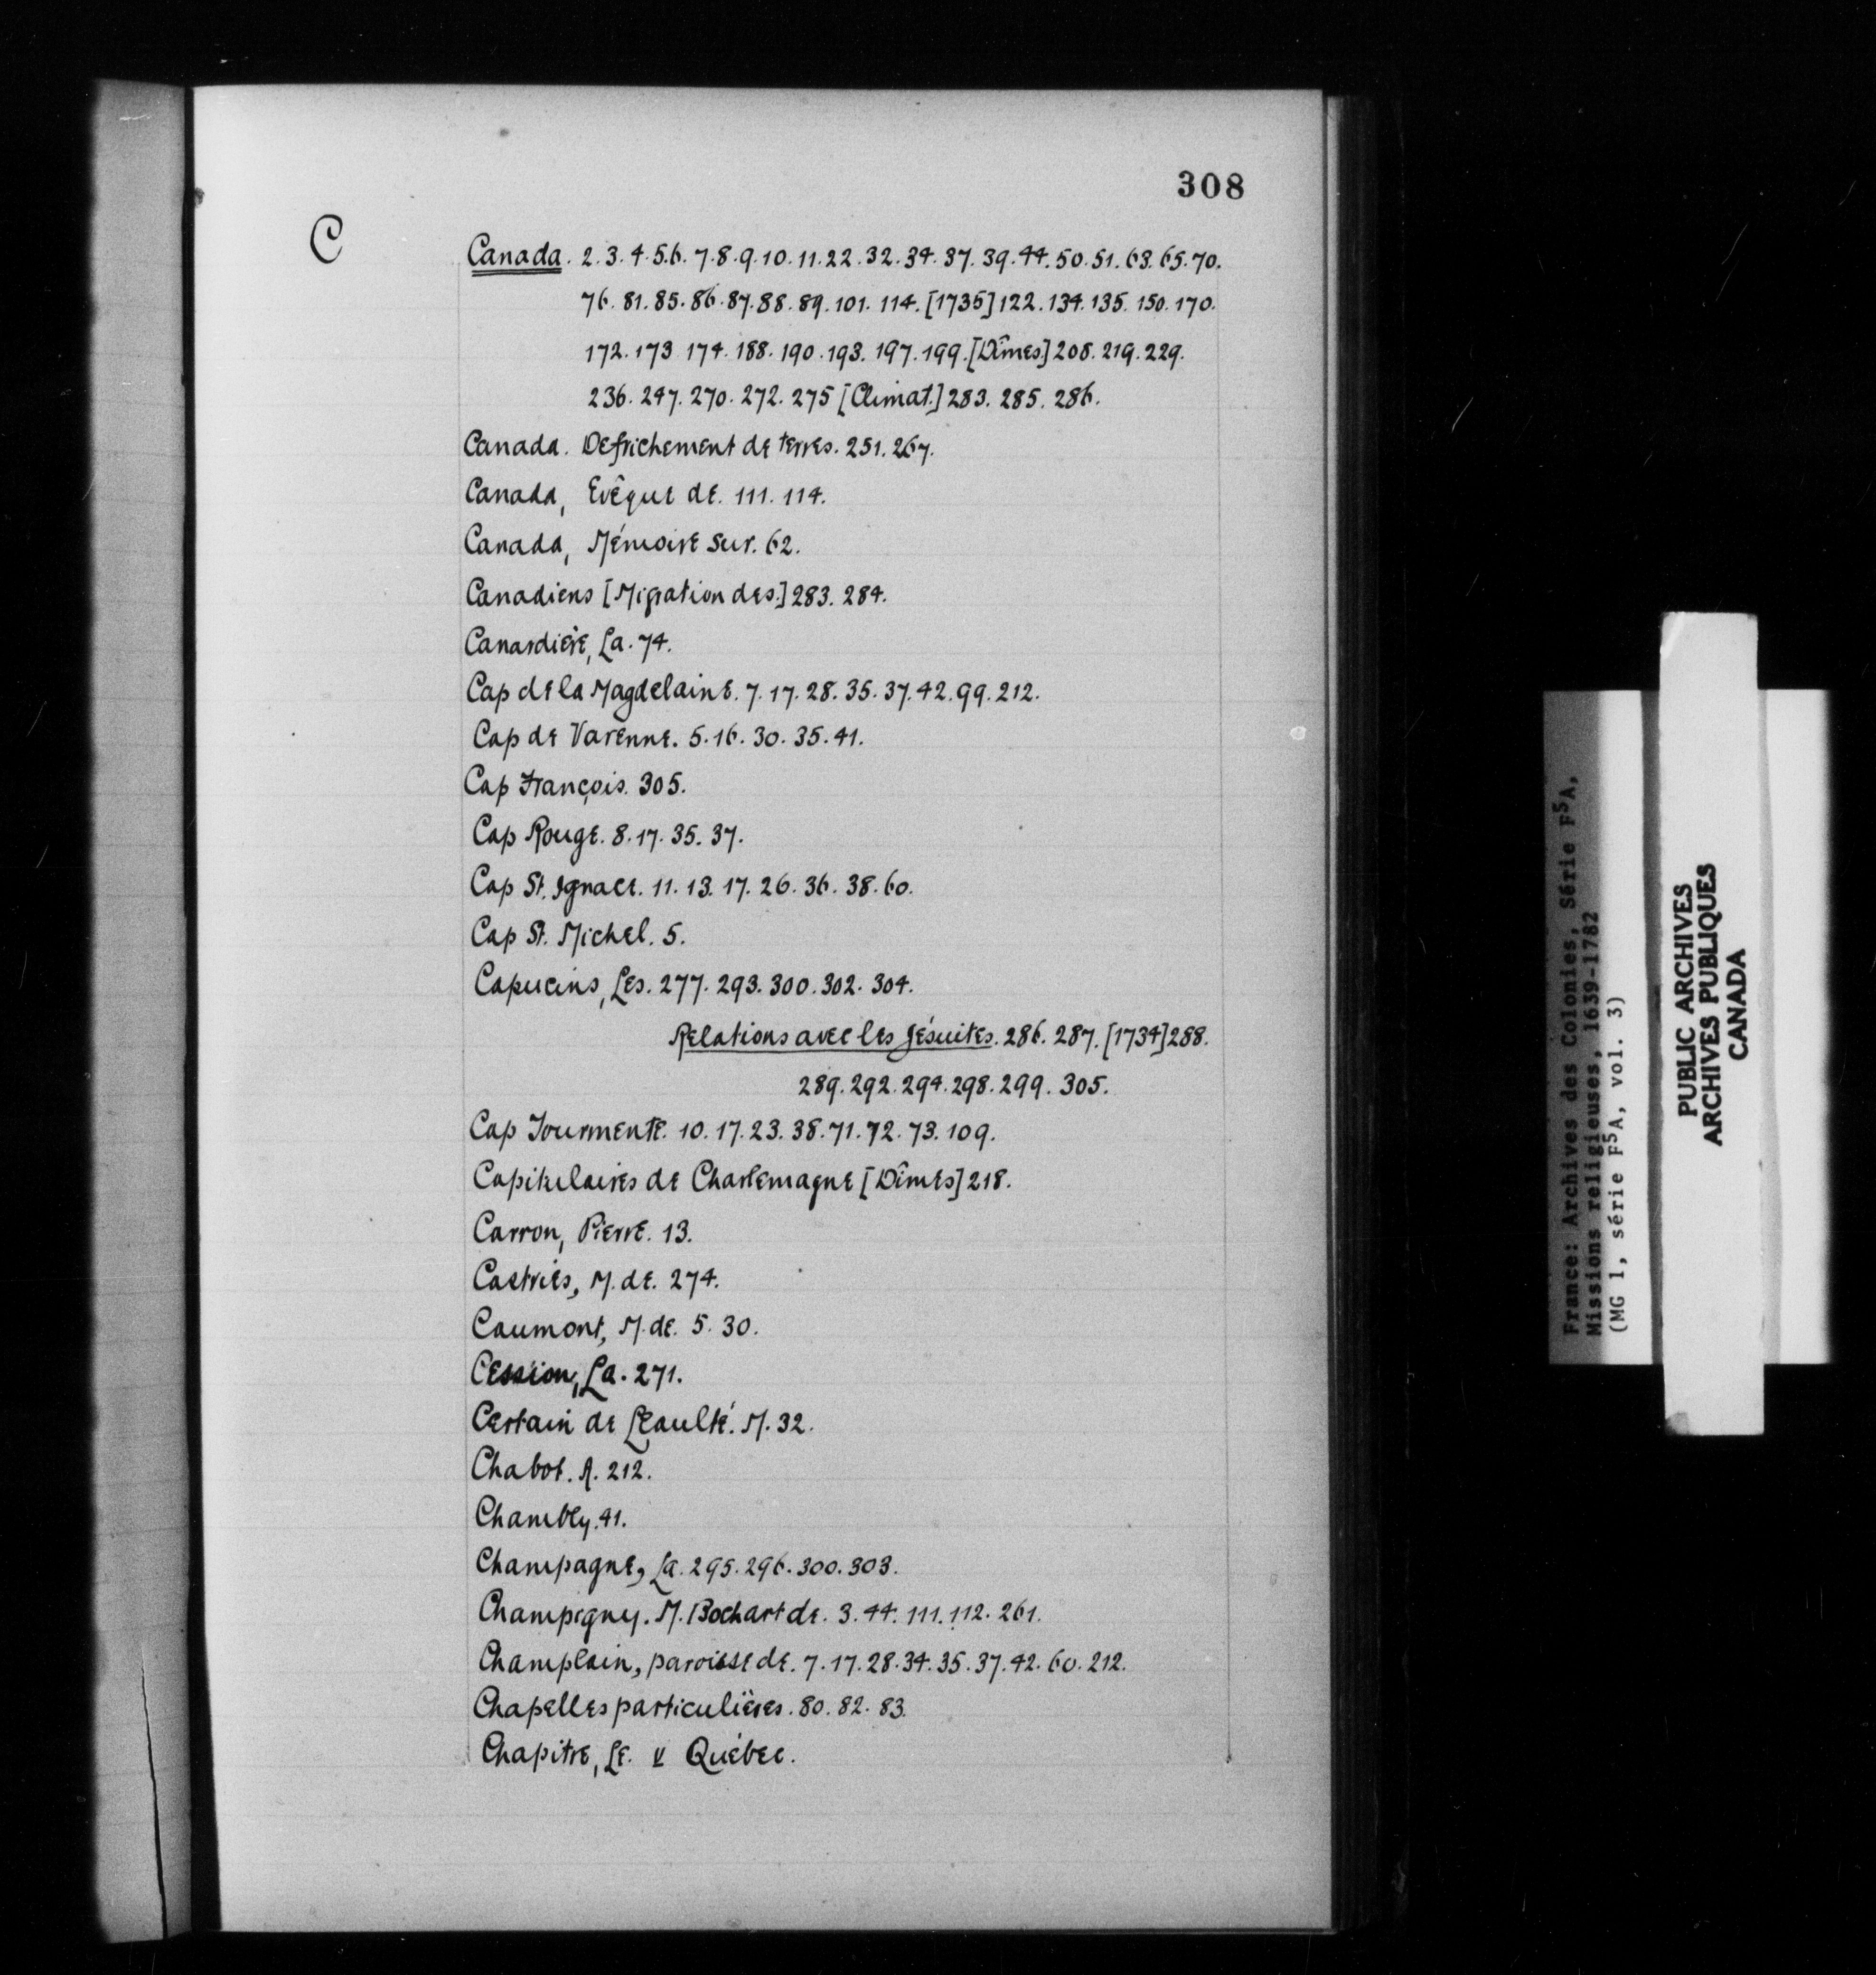 308
C
Canada. 2. 3. 4. 5. 6. 7. 8. 9. 10. 11. 22. 32. 34. 37. 39. 44. 50. 51. 63. 65. 70.
76. 81. 85. 86. 87. 88. 89. 101. 114. [1735] 122. 134. 135. 150. 170.
172. 173 174. 188. 190. 193. 197. 199. [Dîmes] 208. 219. 229.
236. 247. 270. 272. 275 [Climat.] 283. 285. 286.
Canada. Defrichement de terres. 251. 267.
Canada, Evêque de. 111. 114.
Canada, Mémoire sur. 62.
Canadiens [Migration des.] 283. 284.
Canardière, La. 74.
Cap de la Magdelaine. 7. 17. 28. 35. 37. 42. 99. 212.
Cap de Varenne. 5. 16. 30. 35. 41.
Cap François. 305.
Cap Rouge. 8. 17. 35. 37.
Cap St. Ignace. 11. 13. 17. 26. 36. 38. 60.
Cap St. Michel. 5.
Capucins, Les. 277. 293. 300. 302. 304.
Relations avec les Jésuites. 286. 287. [1734] 288.
289. 292. 294. 298. 299. 305.
Cap Tourmente. 10. 17. 23. 38. 71. 72. 73. 109.
Capitulaires de Charlemagne [Dîmes] 218.
Carron, Pierre. 13.
Castries, M. de. 274.
Caumont, M. de. 5. 30.
Cession, La. 271.
Certain de Léaulté. M. 32.
Chabot. A. 212.
Chambly. 41.
Champagne, La. 295. 296. 300. 303.
Champigny. M. Bochart de. 3. 44. 111. 112. 261.
Champlain, paroisse de. 7. 17. 28. 34. 35. 37. 42. 60. 212.
Chapelles particulières. 80. 82. 83.
Chapitre, Le. v Québec.
France: Archives des Colonies, Série F5A,
Missions religieuses, 1639-1782
(MG 1, série F5A, vol. 3)
PUBLIC ARCHIVES
ARCHIVES PUBLIQUES
CANADA